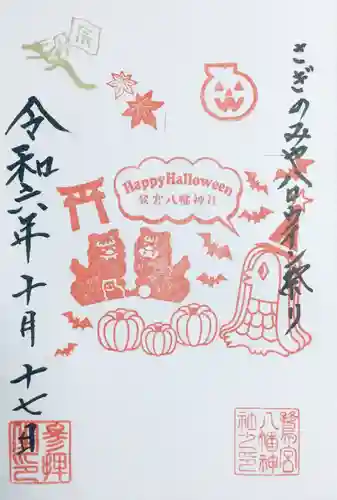 さぎのみやハロウイン祭り
辰
Happy Halloween
鷺宮八幡神社
令和六年十月十七日
参拝
鷺宮
八幡神
社之印